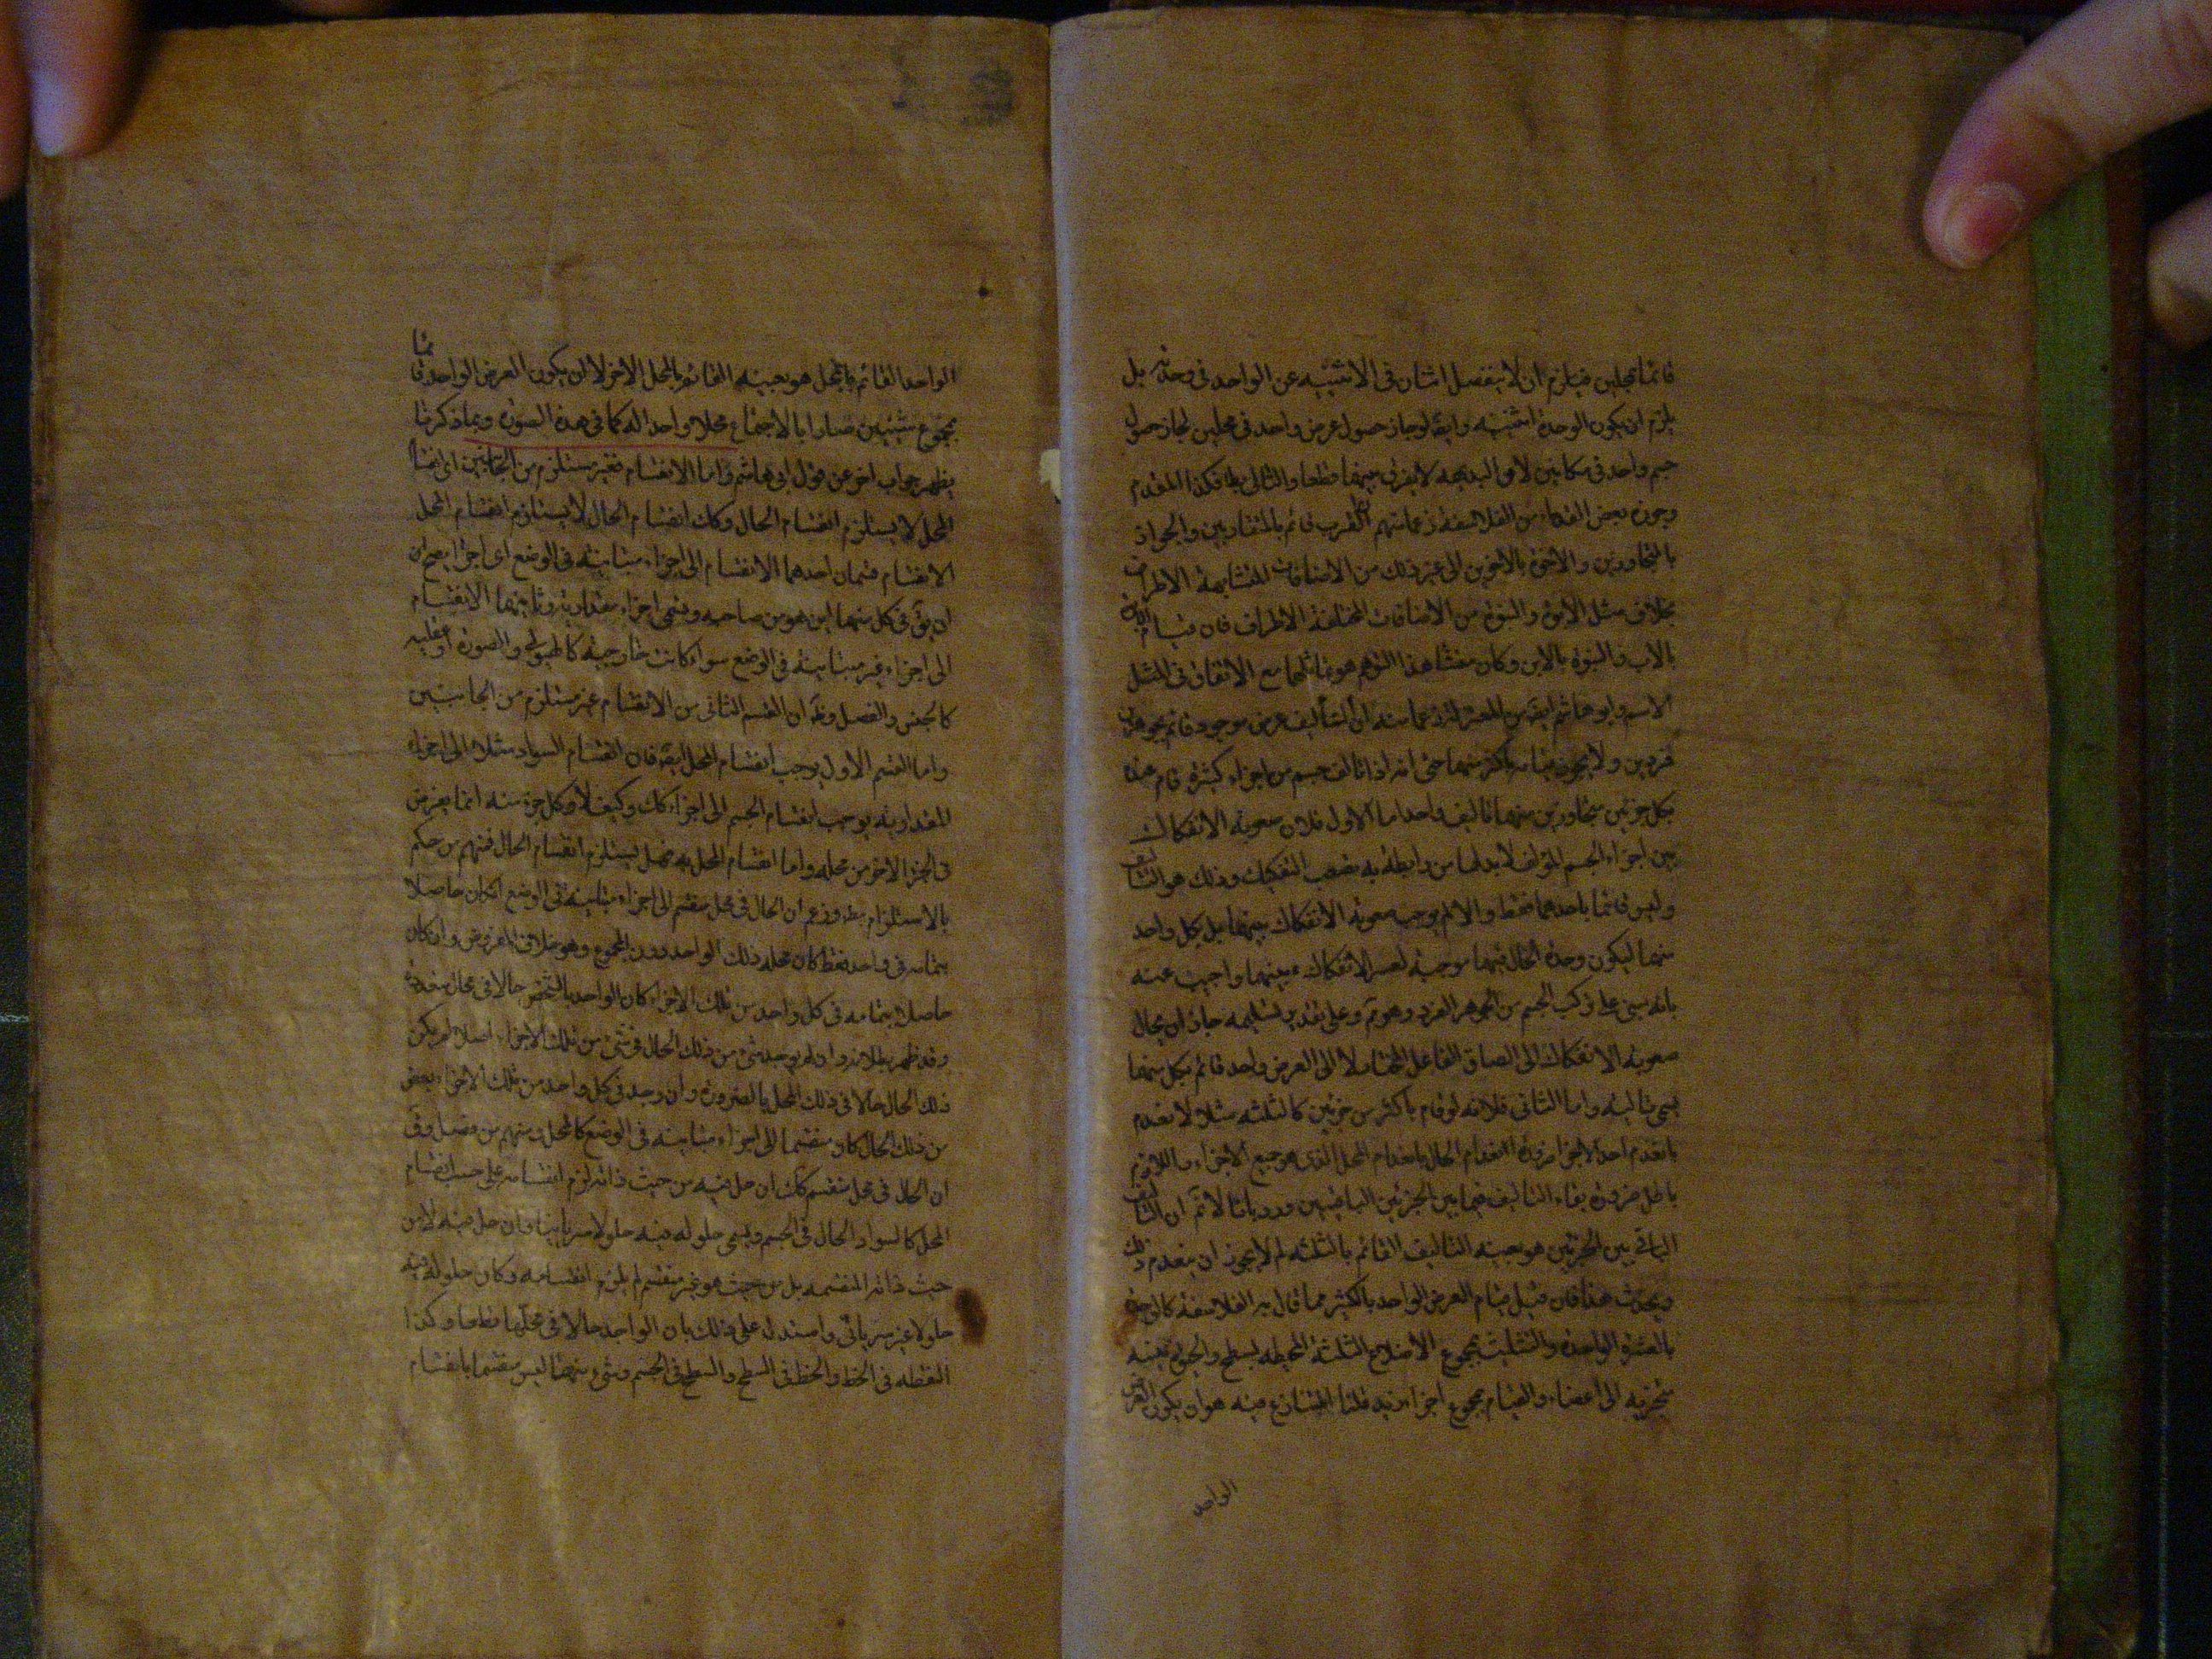 قائما بمحلين فيلزم ان لا ينفصل اثنان فى الاثنينيه عن الواحد فى وحدته بل
يلزم ان يكون الوحدة اثنينيه وايضا لوجاز حصول عرض واحد فى محلين لجاز حصول
جسم واحد فى مكانين لان البديهه لا يفرق بينهما قطعا والتالى بط فكذا المقدم
وجوزه بعض القدماء من الفلاسفة زعما منهم ان القرب قائم بالمتقاربين والجوار
بالمتجاورين والاخوة بالاخوين الى غير ذلك من الاضافات المتشابهة الاطراف
بخلاف مثل الابوة والبنوة من الاضافات المختلفة الاطراف فان قيام الابوة
بالاب والبنوة بالابن وكان منشا هذا التوهم هو تماثلهما مع الاتفاق فى المثل
الاسم وابو هاشم ايضا من المعتزلة زعما منه ان التأليف عرض موجود قائم بجوهرين
فردين ولا يجوز قيامه باكثر منهما حتى انه اذا تالف جسم من اجزاء كثيرة قام عنده
بكل جزئين متجاورين منهما تاليف واحد اما الاول فلان صعوبة الانفكاك
بين اجزاء الجسم المؤلف لابد لها من رابطة به يصعب التفكيك وذلك هو التاليف
وليس قائما باحدهما فقط والا لم يوجب صعوبة الانفكاك بينهما بل بكل واحد
منهما ليكون وحدة الحال فيهما موجبة لعسر الانفكاك بينهما واجيب عنه
بانه مبنى على تركب الجسم من الجوهر الفرد وهو ثم وعلى تقدير تسليمه جاز ان يحال
صعوبة الانفكاك الى الصاق الفاعل المختار لا الى العرض واحد قائم بكل منهما
يسمى تاليفه واما الثانى فلانه لو قام باكثر من جزئين كالثلثه مثلا لانعدم
بانعدم احد الاجزا ضرورة انعدام الحال بانعدام المحل الذى هو جميع الاجزاء واللازم
باطل ضرورة بقاء التاليف فيما بين الجزئين الباقيين ورد بانا لا نم ان التاليف
الباقى بين الجزئين هو بعينه التاليف القائم بالثلثه لم لا يجوز ان ينعدم ذلك
ويحدث هذا فان قيل قيام العرض الواحد بالكثير مما قال به الفلاسفة كالوحدة
بالعشرة الواحدة والتثليث بمجموع الاضلاع الثلثة المحيطه بسطح والحيوة ببنيه
متجزيه الى اعضاء والقيام بمجموع اجزاء زيد قلنا المتنازع فيه هو ان يكون العرض
الواحد
الواحد القائم بالمحل هو بعينه القائم بالمحل الاخر لا ان يكون العرض الواحد قائما
بمجموع شيئين صارا بالاجتماع محلا واحدا له كما فى هذه الصورة وبما ذكرنا
يظهر جواب اخر عن قول ابى هاشم واما الانقسام فغير مستلزم من الجانبين اى انقسام
المحل لا يستلزم انقسام الحال وكك انقسام الحال لا يستلزم انقسام المحل
الانقسام قسمان احدهما الانقسام الى اجزاء متباينة فى الوضع اى اجزا يصح ان
ان يق فى كل منهما اين هو من صاحبه ويسمى اجزاء مقدارية وثانيهما الانقسام
الى اجزاء غير متباينة فى الوضع سواء كانت خارجية كالهيولى والصورة او عقليه
كالجنس والفصل ولا ان القسم الثانى من الانقسام غير مستلزم من الجانبين
واما القسم الاول يوجب انقسام المحل ايضا فان انقسام السواد مثلا الى اجزاء
المقدارية يوجب انقسام الجسم الى اجزاء كك وكيف لا وكل جزء منه انما يعرض
فى الجزء الاخر من محله واما انقسام المحل به فهل يستلزم انقسام الحال فمنهم من حكم
بالاستلزام مط وزعم ان الحال فى محل منقسم الى اجزاء متباينة فى الوضع ان كان حاصلا
بتمامه فى واحد فقط كان محله ذلك الواحد دون المجموع وهو خلاف المفروض وان كان
حاصلا بتمامه فى كل واحد من تلك الاجزاء كان الواحد بالشخص حالا فى محال متعدده
وقد ظهر بطلانه وان لم يوجد شئ من ذلك الحال فى شئ من تلك الاجزاء اصلا لم يكن
ذلك الحال حالا فى ذلك المحل بالضرورة وان وجد فى كل واحد من تلك الاجزاء بعض
من ذلك الحال كان منقسما الى اجزاء متباينة فى الوضع كالمحل ومنهم من فصل وق
ان الحال فى محل منقسم كك ان حل فيه من حيث ذاته لزم انقسامه على حسب انقسام
المحل كالسواد الحال فى الجسم ويسمى حلوله فيه حلولا سريانيا وان حل فيه لا من
حيث ذاته المنقسمه بل من حيث هو غير منقسم لم يلزم انقسامه وكان حلوله فيه
حلولا غير سريانى واستدل على ذلك بان الواحد حالا فى محلها قطعا وكذا
النقطه فى الخط والخط فى السطح والسطح فى الجسم وشئ منهما ليس منقسما بانقسام